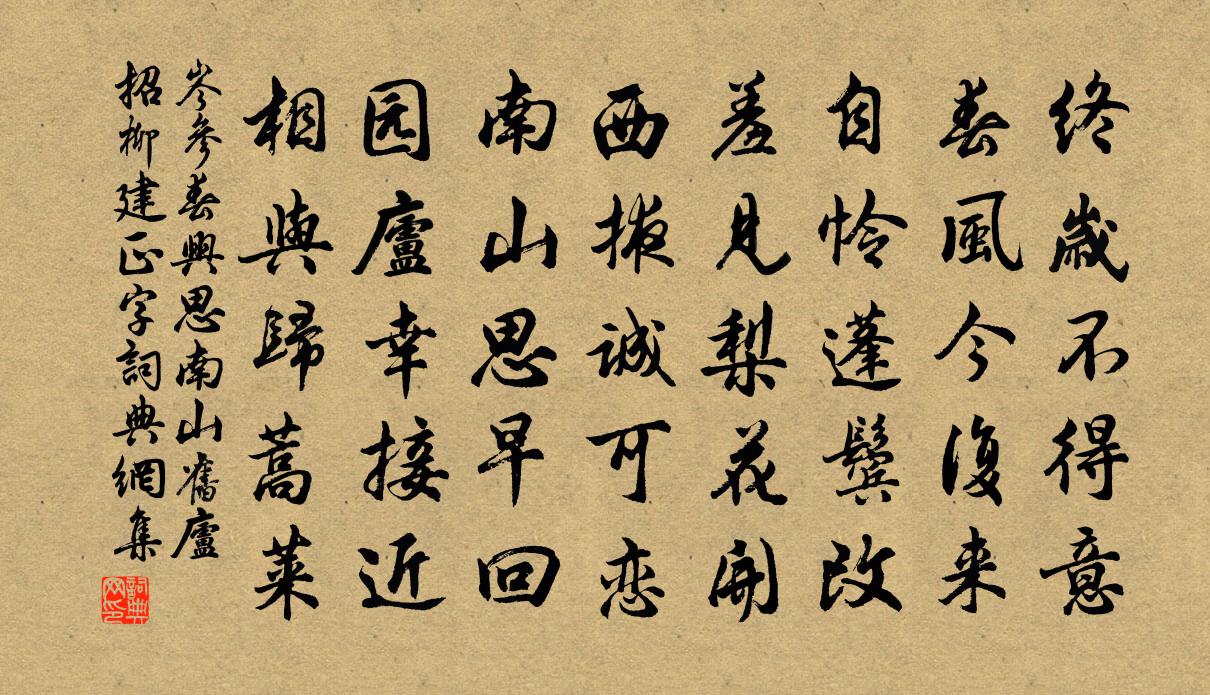 终歲不得意
春風今復来
自怜蓬鬓改
羞見梨花開
西掖誠可恋
南山思早回
园廬幸接近
相與歸蒿萊
岑參春興思南山舊廬
招柳建正字詞典網集
詞典网印